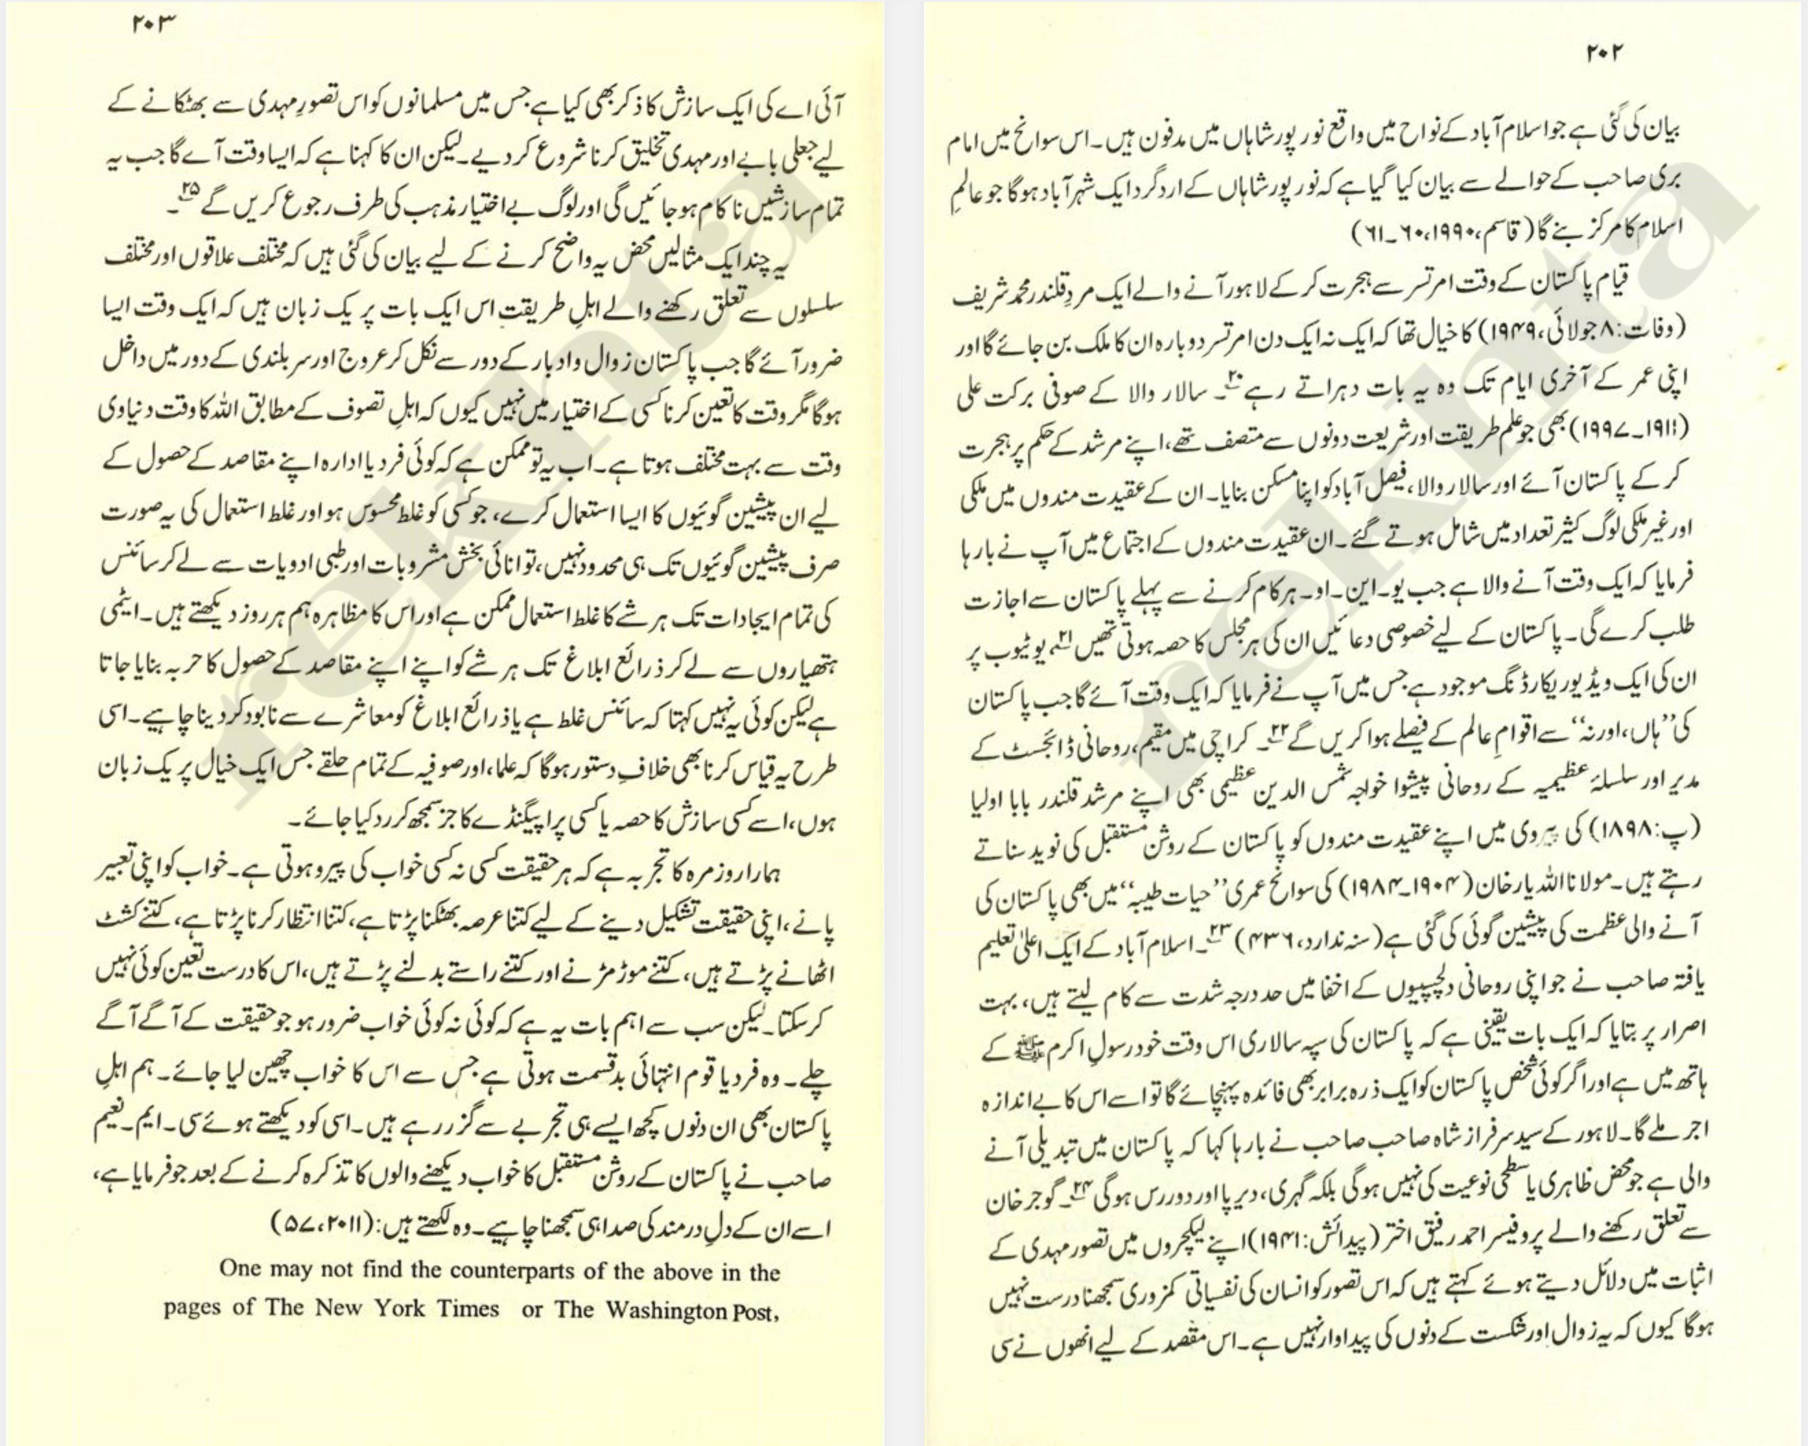 ۲۰۲
بیان کی گئی ہے جو اسلام آباد کے نواح میں واقع نور پور شاہاں میں مدفون ہیں۔ اس سوانح میں امام
بری صاحب کے حوالے سے بیان کیا گیا ہے کہ نور پور شاہاں کے ارد گرد ایک شہر آباد ہوگا جو عالمِ
اسلام کا مرکز بنے گا (قاسم، ۱۹۹۰، ۶۰۔۶۱)
قیام پاکستان کے وقت امرتسر سے ہجرت کر کے لاہور آنے والے ایک مردِ قلندر محمد شریف
(وفات: ۸ جولائی، ۱۹۴۹) کا خیال تھا کہ ایک نہ ایک دن امرتسر دوبارہ ان کا ملک بن جائے گا اور
اپنی عمر کے آخری ایام تک وہ یہ بات دہراتے رہے۲۰۔ سالار والا کے صوفی برکت علی
(۱۹۱۱۔۱۹۹۷) بھی جو علم طریقت اور شریعت دونوں سے متصف تھے، اپنے مرشد کے حکم پر ہجرت
کر کے پاکستان آئے اور سالار والا، فیصل آباد کو اپنا مسکن بنایا۔ ان کے عقیدت مندوں میں ملکی
اور غیر ملکی لوگ کثیر تعداد میں شامل ہوتے گئے۔ ان عقیدت مندوں کے اجتماع میں آپ نے بارہا
فرمایا کہ ایک وقت آنے والا ہے جب یو۔این۔او۔ ہر کام کرنے سے پہلے پاکستان سے اجازت
طلب کرے گی۔ پاکستان کے لیے خصوصی دعائیں ان کی ہر مجلس کا حصہ ہوتی تھیں۲۱، یوٹیوب پر
ان کی ایک ویڈیو ریکارڈنگ موجود ہے جس میں آپ نے فرمایا کہ ایک وقت آئے گا جب پاکستان
کی ”ہاں، اور نہ“ سے اقوامِ عالم کے فیصلے ہوا کریں گے۲۲۔ کراچی میں مقیم، روحانی ڈائجسٹ کے
مدیر اور سلسلۂ عظیمیہ کے روحانی پیشوا خواجہ شمس الدین عظیمی بھی اپنے مرشد قلندر بابا اولیا
(پ: ۱۸۹۸) کی پیروی میں اپنے عقیدت مندوں کو پاکستان کے روشن مستقبل کی نوید سناتے
رہتے ہیں۔ مولانا اللہ یار خان (۱۹۰۴۔۱۹۸۴) کی سوانح عمری ”حیات طیبہ“ میں بھی پاکستان کی
آنے والی عظمت کی پیشین گوئی کی گئی ہے (سنہ ندارد، ۴۳۶)۲۳۔ اسلام آباد کے ایک اعلیٰ تعلیم
یافتہ صاحب نے جو اپنی روحانی دلچسپیوں کے اخفا میں حد درجہ شدت سے کام لیتے ہیں، بہت
اصرار پر بتایا کہ ایک بات یقینی ہے کہ پاکستان کی سپہ سالاری اس وقت خود رسولِ اکرم ﷺ کے
ہاتھ میں ہے اور اگر کوئی شخص پاکستان کو ایک ذرہ برابر بھی فائدہ پہنچائے گا تو اسے اس کا بے اندازہ
اجر ملے گا۔ لاہور کے سید سرفراز شاہ صاحب صاحب نے بارہا کہا کہ پاکستان میں تبدیلی آنے
والی ہے جو محض ظاہری یا سطحی نوعیت کی نہیں ہوگی بلکہ گہری، دیرپا اور دور رس ہوگی۲۴۔ گوجر خان
سے تعلق رکھنے والے پروفیسر احمد رفیق اختر (پیدائش: ۱۹۴۱) اپنے لیکچروں میں تصور مہدی کے
اثبات میں دلائل دیتے ہوئے کہتے ہیں کہ اس تصور کو انسان کی نفسیاتی کمزوری سمجھنا درست نہیں
ہوگا کیوں کہ یہ زوال اور شکست کے دنوں کی پیداوار نہیں ہے۔ اس مقصد کے لیے انھوں نے سی
۲۰۳
آئی اے کی ایک سازش کا ذکر بھی کیا ہے جس میں مسلمانوں کو اس تصورِ مہدی سے بھٹکانے کے
لیے جعلی بابے اور مہدی تخلیق کرنا شروع کر دیے۔ لیکن ان کا کہنا ہے کہ ایسا وقت آے گا جب یہ
تمام سازشیں ناکام ہو جائیں گی اور لوگ بے اختیار مذہب کی طرف رجوع کریں گے۲۵۔
یہ چند ایک مثالیں محض یہ واضح کرنے کے لیے بیان کی گئی ہیں کہ مختلف علاقوں اور مختلف
سلسلوں سے تعلق رکھنے والے اہلِ طریقت اس ایک بات پر یک زبان ہیں کہ ایک وقت ایسا
ضرور آئے گا جب پاکستان زوال و ادبار کے دور سے نکل کر عروج اور سربلندی کے دور میں داخل
ہوگا مگر وقت کا تعین کرنا کسی کے اختیار میں نہیں کیوں کہ اہلِ تصوف کے مطابق اللہ کا وقت دنیاوی
وقت سے بہت مختلف ہوتا ہے۔ اب یہ تو ممکن ہے کہ کوئی فرد یا ادارہ اپنے مقاصد کے حصول کے
لیے ان پیشین گوئیوں کا ایسا استعمال کرے، جو کسی کو غلط محسوس ہو اور غلط استعمال کی یہ صورت
صرف پیشین گوئیوں تک ہی محدود نہیں، توانائی بخش مشروبات اور طبی ادویات سے لے کر سائنس
کی تمام ایجادات تک ہر شے کا غلط استعمال ممکن ہے اور اس کا مظاہرہ ہم ہر روز دیکھتے ہیں۔ ایٹمی
ہتھیاروں سے لے کر ذرائع ابلاغ تک ہر شے کو اپنے اپنے مقاصد کے حصول کا حربہ بنایا جاتا
ہے لیکن کوئی یہ نہیں کہتا کہ سائنس غلط ہے یا ذرائع ابلاغ کو معاشرے سے نابود کر دینا چاہیے۔ اسی
طرح یہ قیاس کرنا بھی خلافِ دستور ہوگا کہ علما، اور صوفیہ کے تمام حلقے جس ایک خیال پر یک زبان
ہوں، اسے کسی سازش کا حصہ یا کسی پراپیگنڈے کا جز سمجھ کر رد کیا جائے۔
ہمارا روزمرہ کا تجربہ ہے کہ ہر حقیقت کسی نہ کسی خواب کی پیرو ہوتی ہے۔ خواب کو اپنی تعبیر
پانے، اپنی حقیقت تشکیل دینے کے لیے کتنا عرصہ بھٹکنا پڑتا ہے، کتنا انتظار کرنا پڑتا ہے، کتنے کشٹ
اٹھانے پڑتے ہیں، کتنے موڑ مڑنے اور کتنے راستے بدلنے پڑتے ہیں، اس کا درست تعین کوئی نہیں
کر سکتا۔ لیکن سب سے اہم بات یہ ہے کہ کوئی نہ کوئی خواب ضرور ہو جو حقیقت کے آگے آگے
چلے۔ وہ فرد یا قوم انتہائی بدقسمت ہوتی ہے جس سے اس کا خواب چھین لیا جائے۔ ہم اہلِ
پاکستان بھی ان دنوں کچھ ایسے ہی تجربے سے گزر رہے ہیں۔ اسی کو دیکھتے ہوئے سی۔ ایم۔ نعیم
صاحب نے پاکستان کے روشن مستقبل کا خواب دیکھنے والوں کا تذکرہ کرنے کے بعد جو فرمایا ہے،
اسے ان کے دلِ درمند کی صدا ہی سمجھنا چاہیے۔ وہ لکھتے ہیں: (۲۰۱۱، ۵۷)
One may not find the counterparts of the above in the
pages of The New York Times or The Washington Post,
rekhta
rekhta